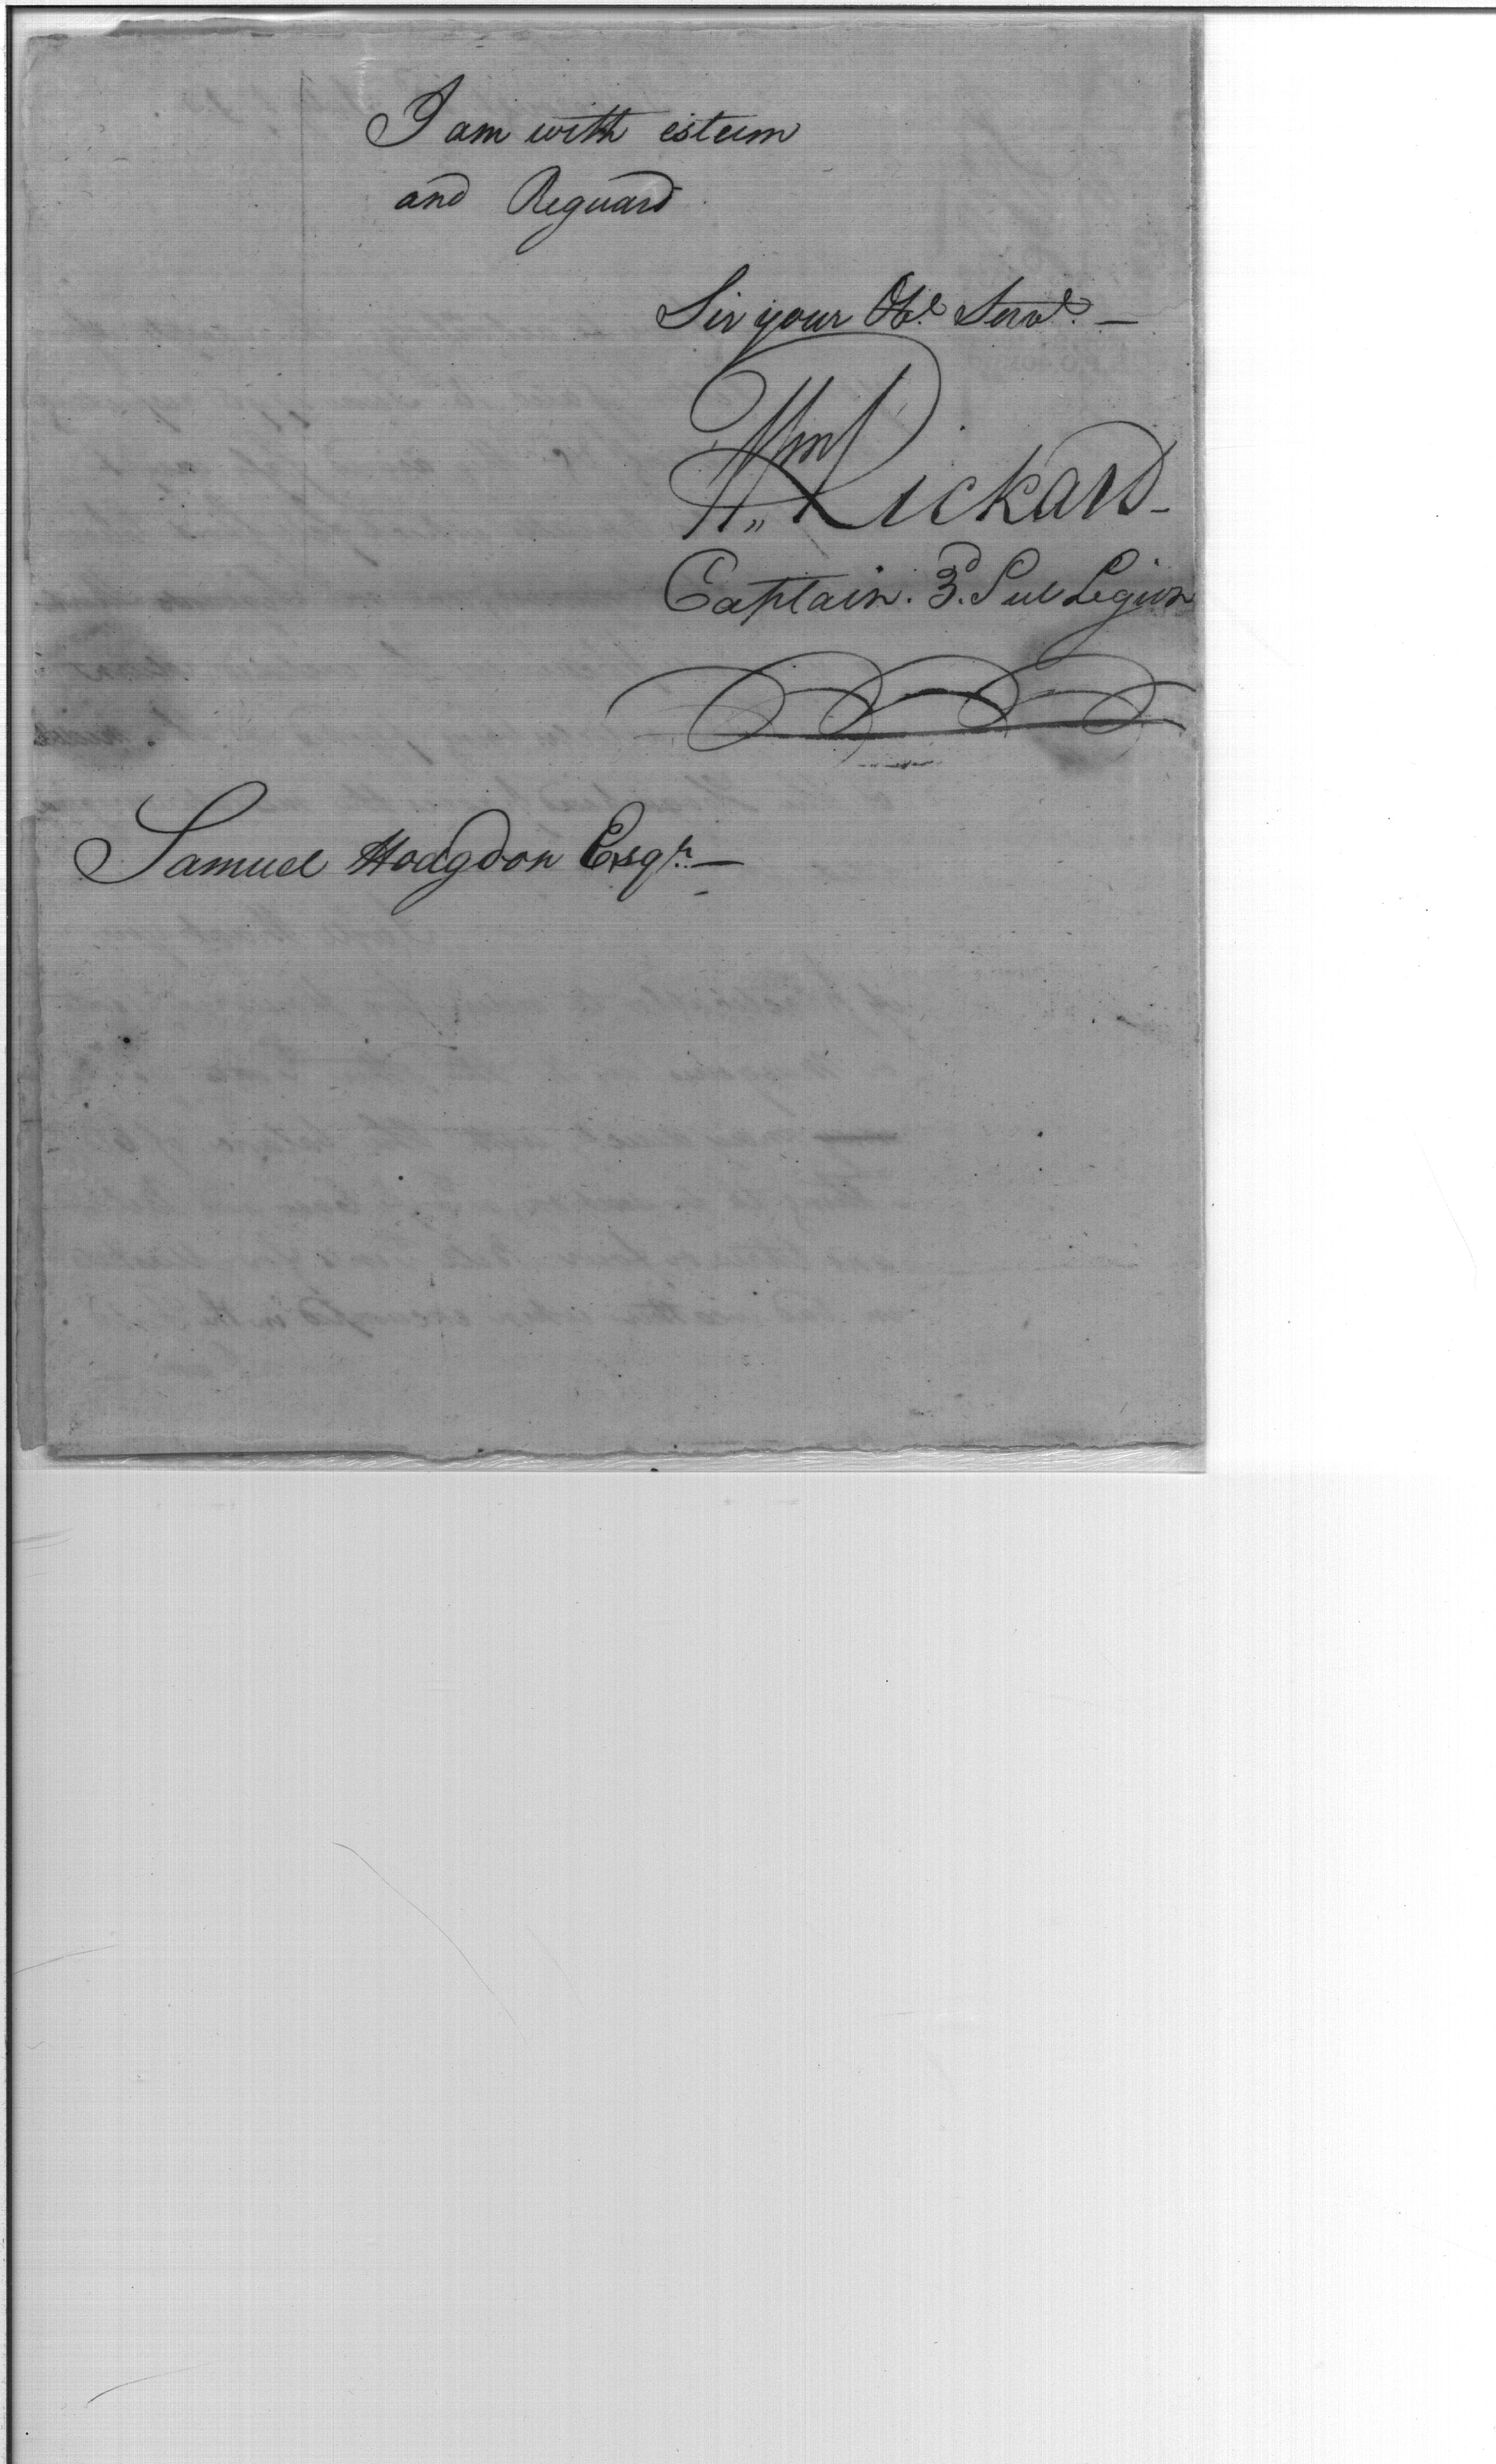 I am with esteem
and Reguard
Sir your Obt. Servt. —
Wm Rickard -
Captain. 3d. Sub Legion
Samuel Hodgdon Esqr. —